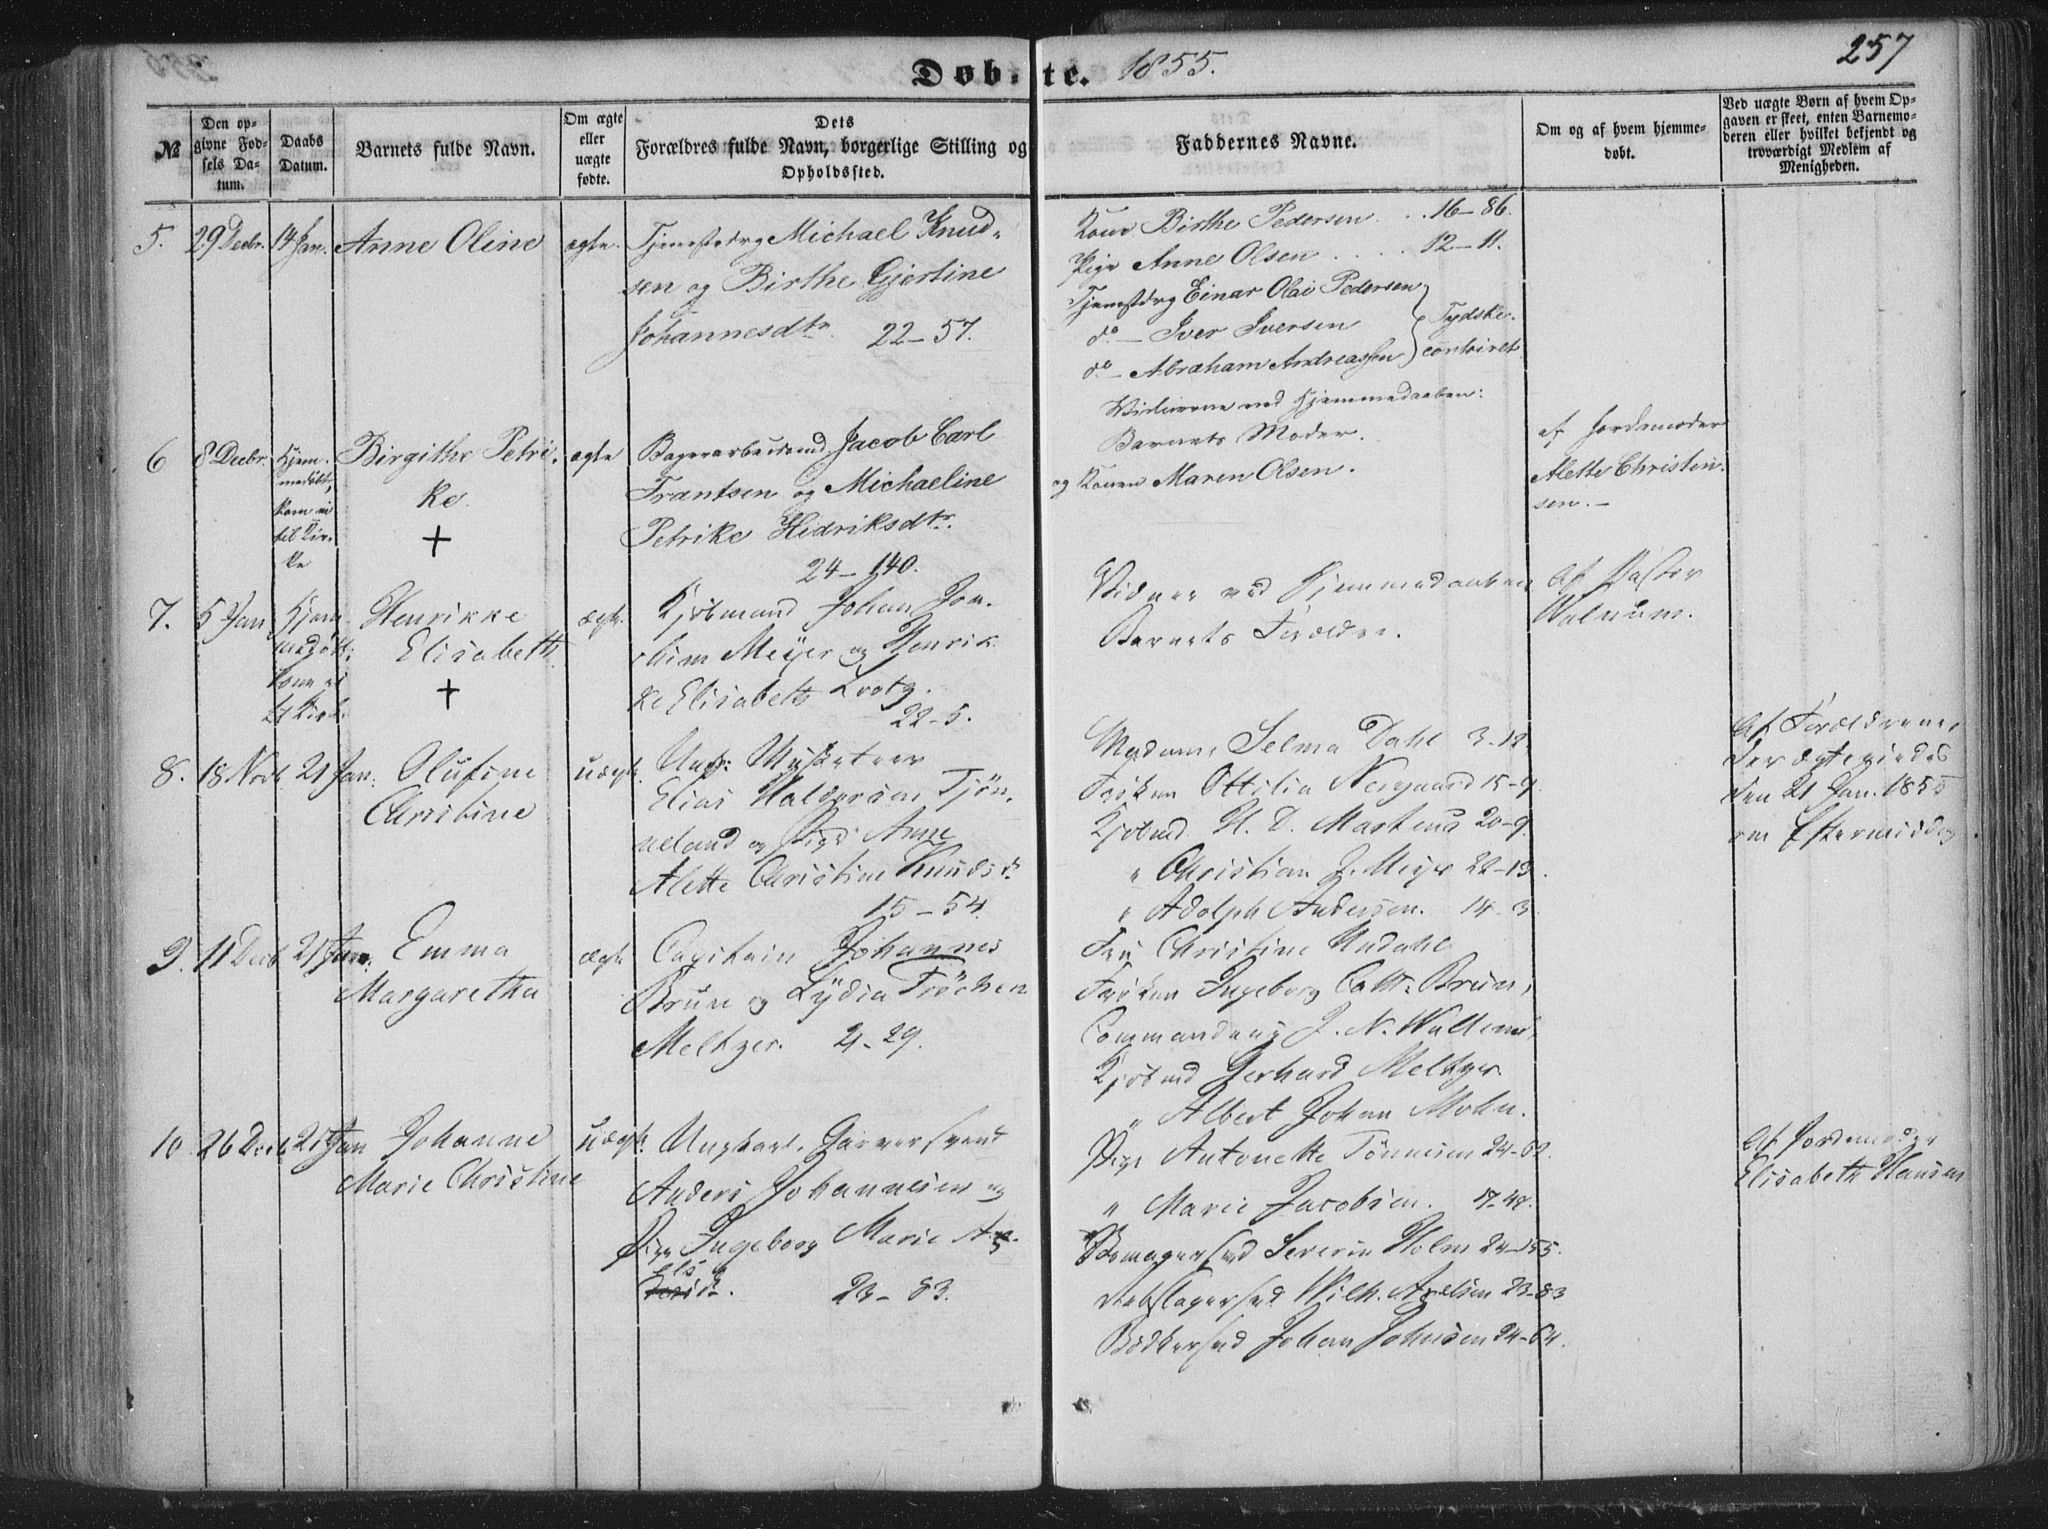 Døbte. 1855.
257
№
Den opgivne Fødsels Datum.
Daabs Datum.
Barnets fulde Navn.
Om ægte eller uægte fødte.
Dets Forældres fulde Navn, borgerlige Stilling og Opholdssted.
Faddernes Navne.
Om og af hvem hjemmedøbt.
Ved uægte Børn af hvem Opgaven er skeet, enten Barnemoderen eller hvilket bekjendt og troværdigt Medlem af Menigheden.
5. 29 Decbr. 14 Jan. Anne Oline ægte. Tjenestedrg Michael Knud-
sen og Birthe Gjertine
Johannesdtr. 22-57.
Kone Birthe Pedersen . . 16-86.
Pige Anne Olsen . . . . 12-11.
Tjenestdrg Einar Olai Pedersen
do - Iver Iversen
do - Abraham Andreassen
Tydske-
contoiret
6 8 Decbr. Hjem-
medøbt,
kom ei
til Kir-
ke
Birgithe Petri-
ke.
+
ægte
Jacob Carl
Frantsen og Michaeline
Petrike Hedriksdtr.
24-140.
ved Hjemmedaaben:
Barnets Moder.
og Konen Maren Olsen.
af Jordemoder
Alette Christen-
sen. -
7. 5 Jan Hjem-
medøbt;
kom ei
til Kirk.
Henrikke
Elisabeth
+
ægte. Kjøbmand Johan Joa-
chim Meyer og Henrik-
ke Elisabeth
22-5.
Vidner ved Hjemmedaaben
Barnets Forældre.
Af Pastor
Walnum.
8. 18 Novb. 21 Jan. Olufine
Christine
uægte. Ungk: Musketeer
Elias Halvorsen Tjøn-
neland og Pige Anne
Alette Christine Knudsd.
15-54.
Madame Selma Dahl 3-12.
Frøken Ottilia Neergaard 15-9.
Kjøbmd. H. D. Martens 20-9.
" Christian J. Meyer 22-13.
" Adolph Andersen. 14-3
Af Forældrene,
der ægteviedes
den 21 Jan. 1855
om Eftermiddag.
9. 11 Decb 21 Jan. Emma
Margaretha
ægte. Capitain Johannes
Brun og Lydia Frøchen
Meltzer. 21-29.
Fru Christine Undahl
Frøken Ingeborg Cath: Brun,
J. N. Wallem,
Kjøbmd Gerhard Meltzer.
" Albert Johan Mohn.
10 26 Decb 21 Jan Johanne
Marie Christine
uægte. Ungkarl, Garversvend
Anders Johannesen og
Pige Ingeborg Marie Ax-
elsd.
23-83.
Pige Antonette Tønnesen 24-62.
" Marie Jacobsen. 17-48.
Severin Holm 24-155.
Rebslagersvd Wilh. Axelsen 23-83
Bødkersvd Johan Johnsen 24-64.
Af Jordemoder
Elisabeth Hansen